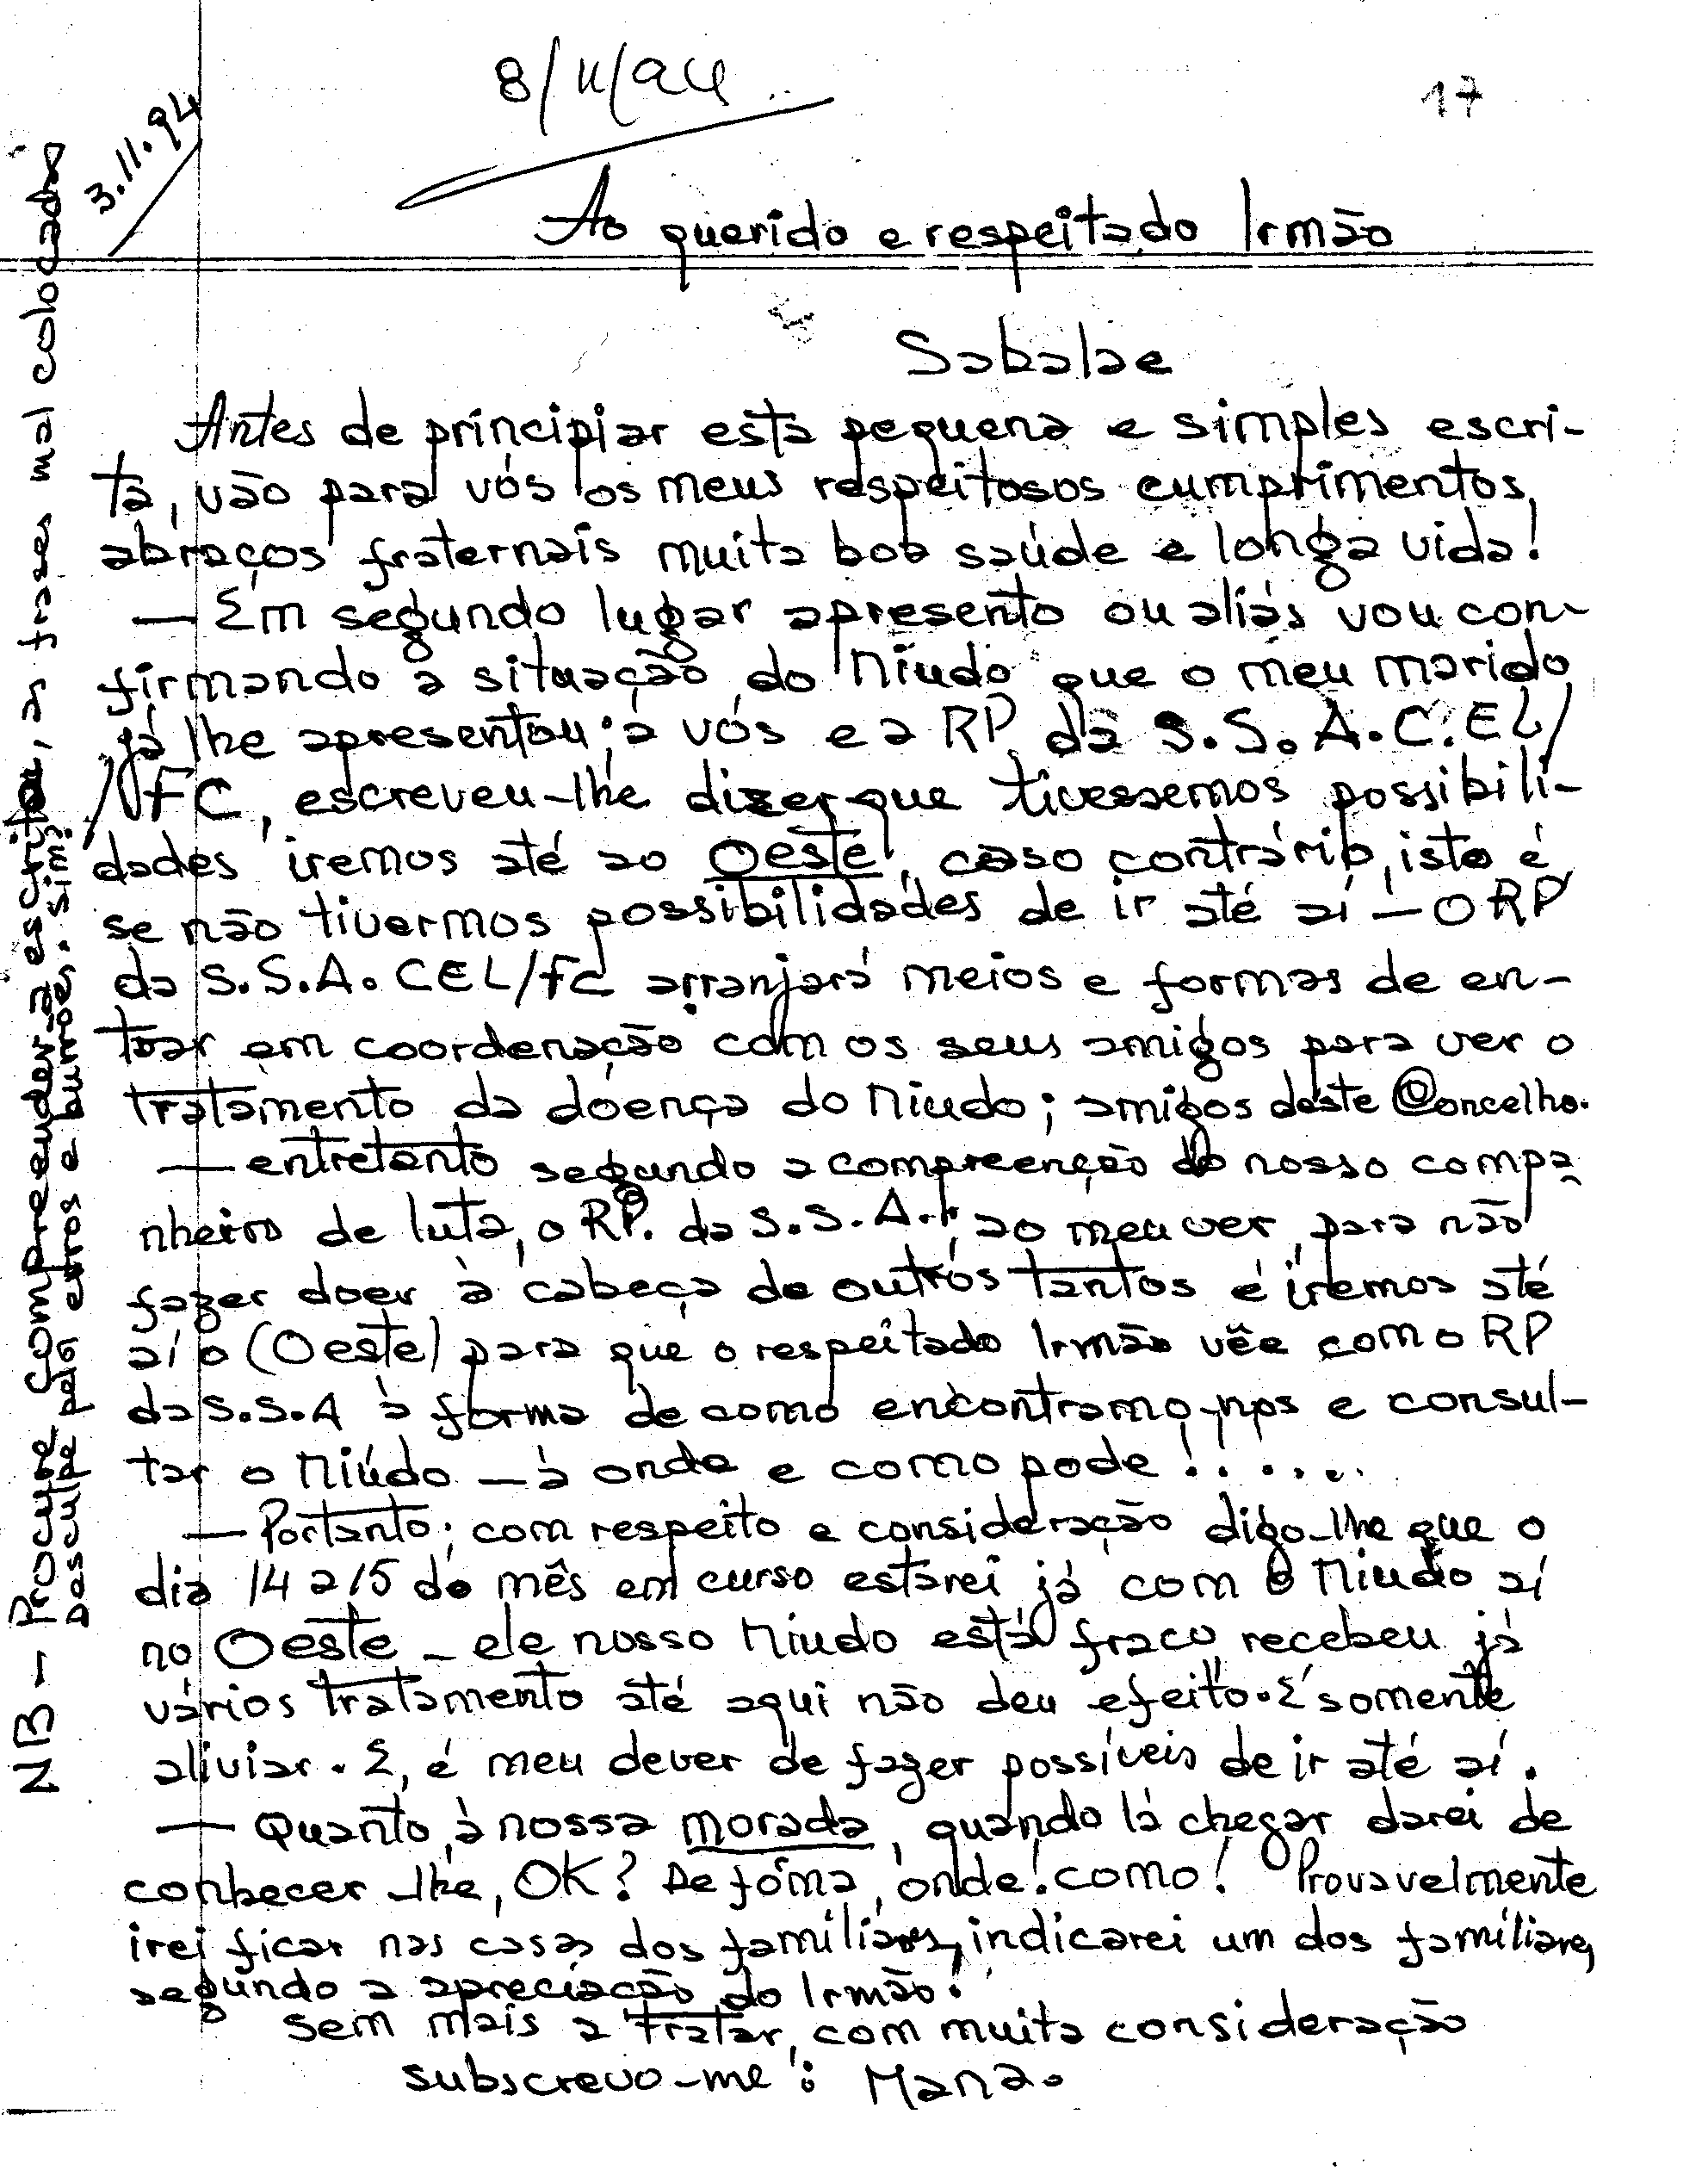 8/11/94
17
3.11.94
Ao querido e respeitado Irmão
Sabalae
Antes de principiar esta pequena e simples escri-
ta, vão para vós os meus respeitosos cumprimentos,
abraços fraternais muita boa saúde e longa vida!
— Em segundo lugar apresento ou aliás vou con-
firmando a situação do Miudo que o meu marido
já lhe apresentou; a vós e a RP da S.S.A.C.EL/
/FC, escreveu-lhe dizer que tivessemos possibili-
dades iremos até ao Oeste, caso contrário, isto é
se não tivermos possibilidades de ir até aí — O RP
da S.S.A. CEL/FC arranjará meios e formas de en-
trar em coordenação com os seus amigos para ver o
tratamento da doença do Miudo; amigos deste Concelho.
— entretanto segundo a compreenção do nosso compa
nheiro de luta, o RP. da S.S.A.; ao meu ver, para não
fazer doer à cabeça de outros tantos é iremos até
aí o (Oeste) para que o respeitado Irmão vêe com o RP
da S.S.A à forma de como encontramo-nos e consul-
tar o Miúdo — à onde e como pode!......
— Portanto; com respeito e consideração digo-lhe que o
dia 14 a 15 do mês em curso estarei já com o Miudo aí
no Oeste - ele nosso Miudo está fraco recebeu já
vários tratamento até aqui não deu efeito. É somente
aliviar. E, é meu dever de fazer possíveis de ir até aí.
— Quanto à nossa morada, quando lá chegar darei de
conhecer-lhe, OK? De fóma, onde! como! Provavelmente
irei ficar nas casas dos famíliares, indicarei um dos famíliares,
segundo a apreciação do Irmão!
Sem mais a tratar, com muita consideração
subscrevo-me: Mana.
NB — Procure Compreender a escrita, as frases mal colocadas
Desculpe pelos erros e burrões. sim?